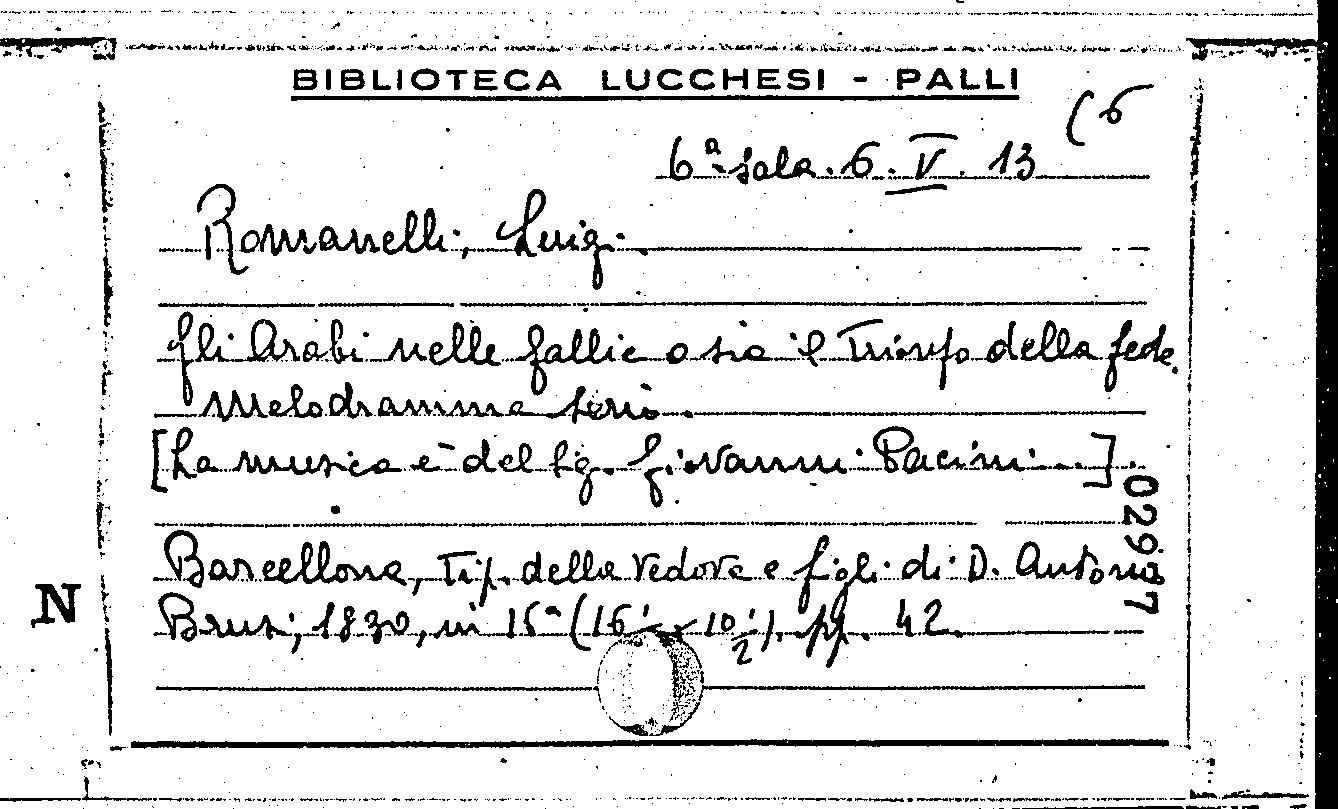 BIBLIOTECA LUCCHESI - PALLI
(6
6ª sala. 6. V. 13
Romanelli, Luigi.
Gli Arabi nelle Gallie o sia il Trionfo della fede.
Melodramma serio.
[La musica è del Sig. Giovanni Pacini...].
02997
Barcellona, Tip. della Vedova e figli di D. Antonio
Brusi, 1830, in 16° (16 x 10 1/2). pp. 42.
N